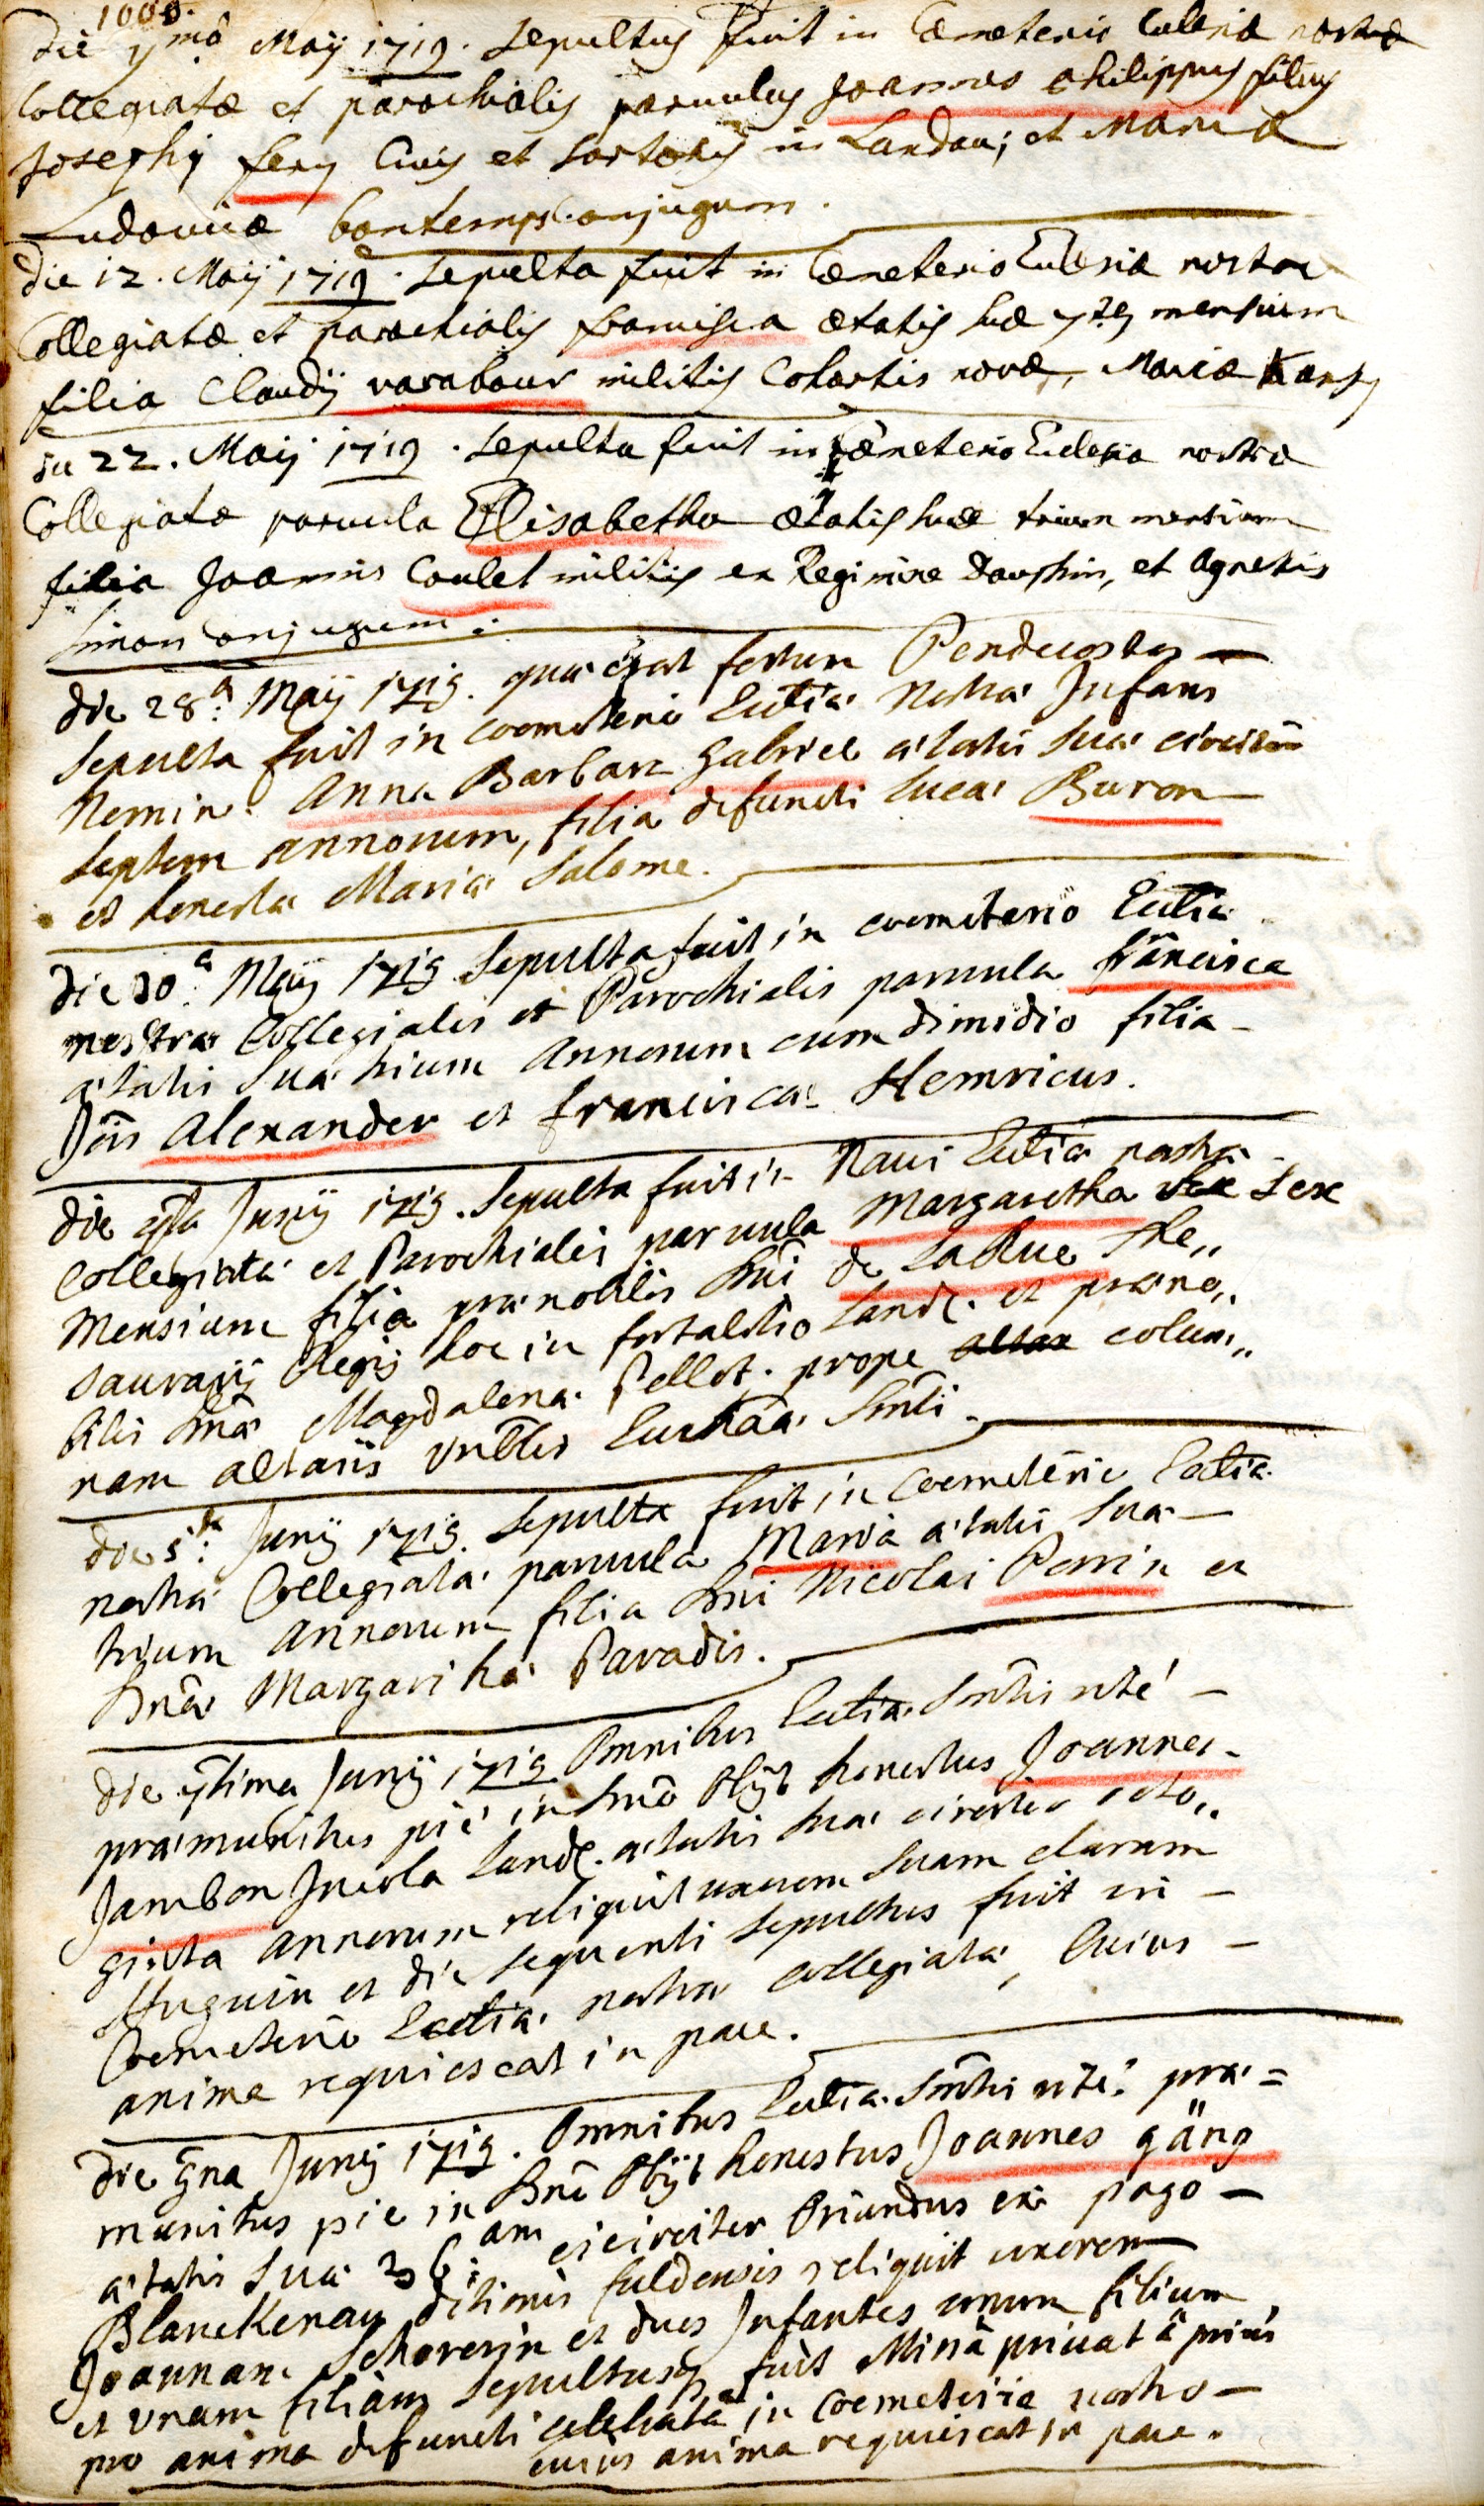 1000.
Die 7mâ Maÿ 1719. Sepultus fuit in Cœmeterio Ecclesiæ nostræ
Collegiatæ et parochialis parvulus Joannes Philippus filius
Josephi fery Civis et Sartoris in Landau; et Mariæ
Ludovicæ bontemps Conjugum.
Die 12. Maÿ 1719. Sepulta fuit in Cœmeterio Ecclesiæ nostræ
Collegiatæ et parochialis francisca ætatis suæ mensium
filia Claudÿ varabour militis Cohortis novæ, Mariæ
die 22. Maÿ 1719. Sepulta fuit in Cœmeterio Ecclesiæ nostræ
Collegiatæ parvula Elisabetha ætatis suæ trium mensium
filia Joannis Coulet militis ex Regimine Dauphin, et Agnetis
Simon Conjugum.
die 28.a Maÿ 1719. qua erat festum Pendecostes
Sepulta fuit in coemeterio Ecctiæ Nostræ Infans
Nomine Anna Barbara Gabriel ætatis suæ circiter
septem annorum, filia defuncti Lucæ Buron
et honestæ Mariæ Salome.
die 30.a Maÿ 1719 Sepulta fuit in coemeterio Ecctiæ
nostræ Collegialis et Parochialis parvula francisca
ætatis suæ trium Annorum cum dimidio filia
Jôis Alexander et franciscæ Hemricus.
die Junÿ 1719. Sepulta fuit in Navi Ecctiæ nostræ
Collegiatæ et Parochialis parvula Margaretha sex
Mensium filia prænobilis Dni de LaRue The„
saurarÿ Regÿ hoc in fortalitio Land. et præno„
bilis Dnæ Magdalenæ Pellot. prope colum„
nam altaris Smti.
die 5.ta Junÿ 1719. Sepulta fuit in Coemeterio Ecctiæ
nostræ Collegiatæ parvula Maria ætatis suæ
trium Annorum filia Dni Nicolai Perrin et
Dnæ Margarithæ Paradis.
die 7tima Junÿ 1719 Omnibus Ecctiæ Smtis rité
præmunitus pié in Dnô Obÿt honestus Joannes
Jambon Incola Land. ætatis suæ circiter octo„
ginta Annorum reliquit uxorem suam claram
Huguin et die sequenti sepultus fuit in
Coemeterio Ecctiæ nostræ collegiatæ, Cuius
anima requiescat in pace.
die 9na Junÿ 1719. Omnibus Ecctiæ Smtis rite præ=
munitus pie in Dnô Obÿt honestus Joannes gäng
ætatis suæ 36 am circiter Oriundus ex pago
Blanckenau ditionis fuldensis reliquit uxorem
Joannam Schorerin et duos Infantes unum filium
et unam filiam Sepultusq fuit Missâ privatâ prius
pro anima defuncti celebrata in Coemeterio nostro
cuius anima requiescat in pace.